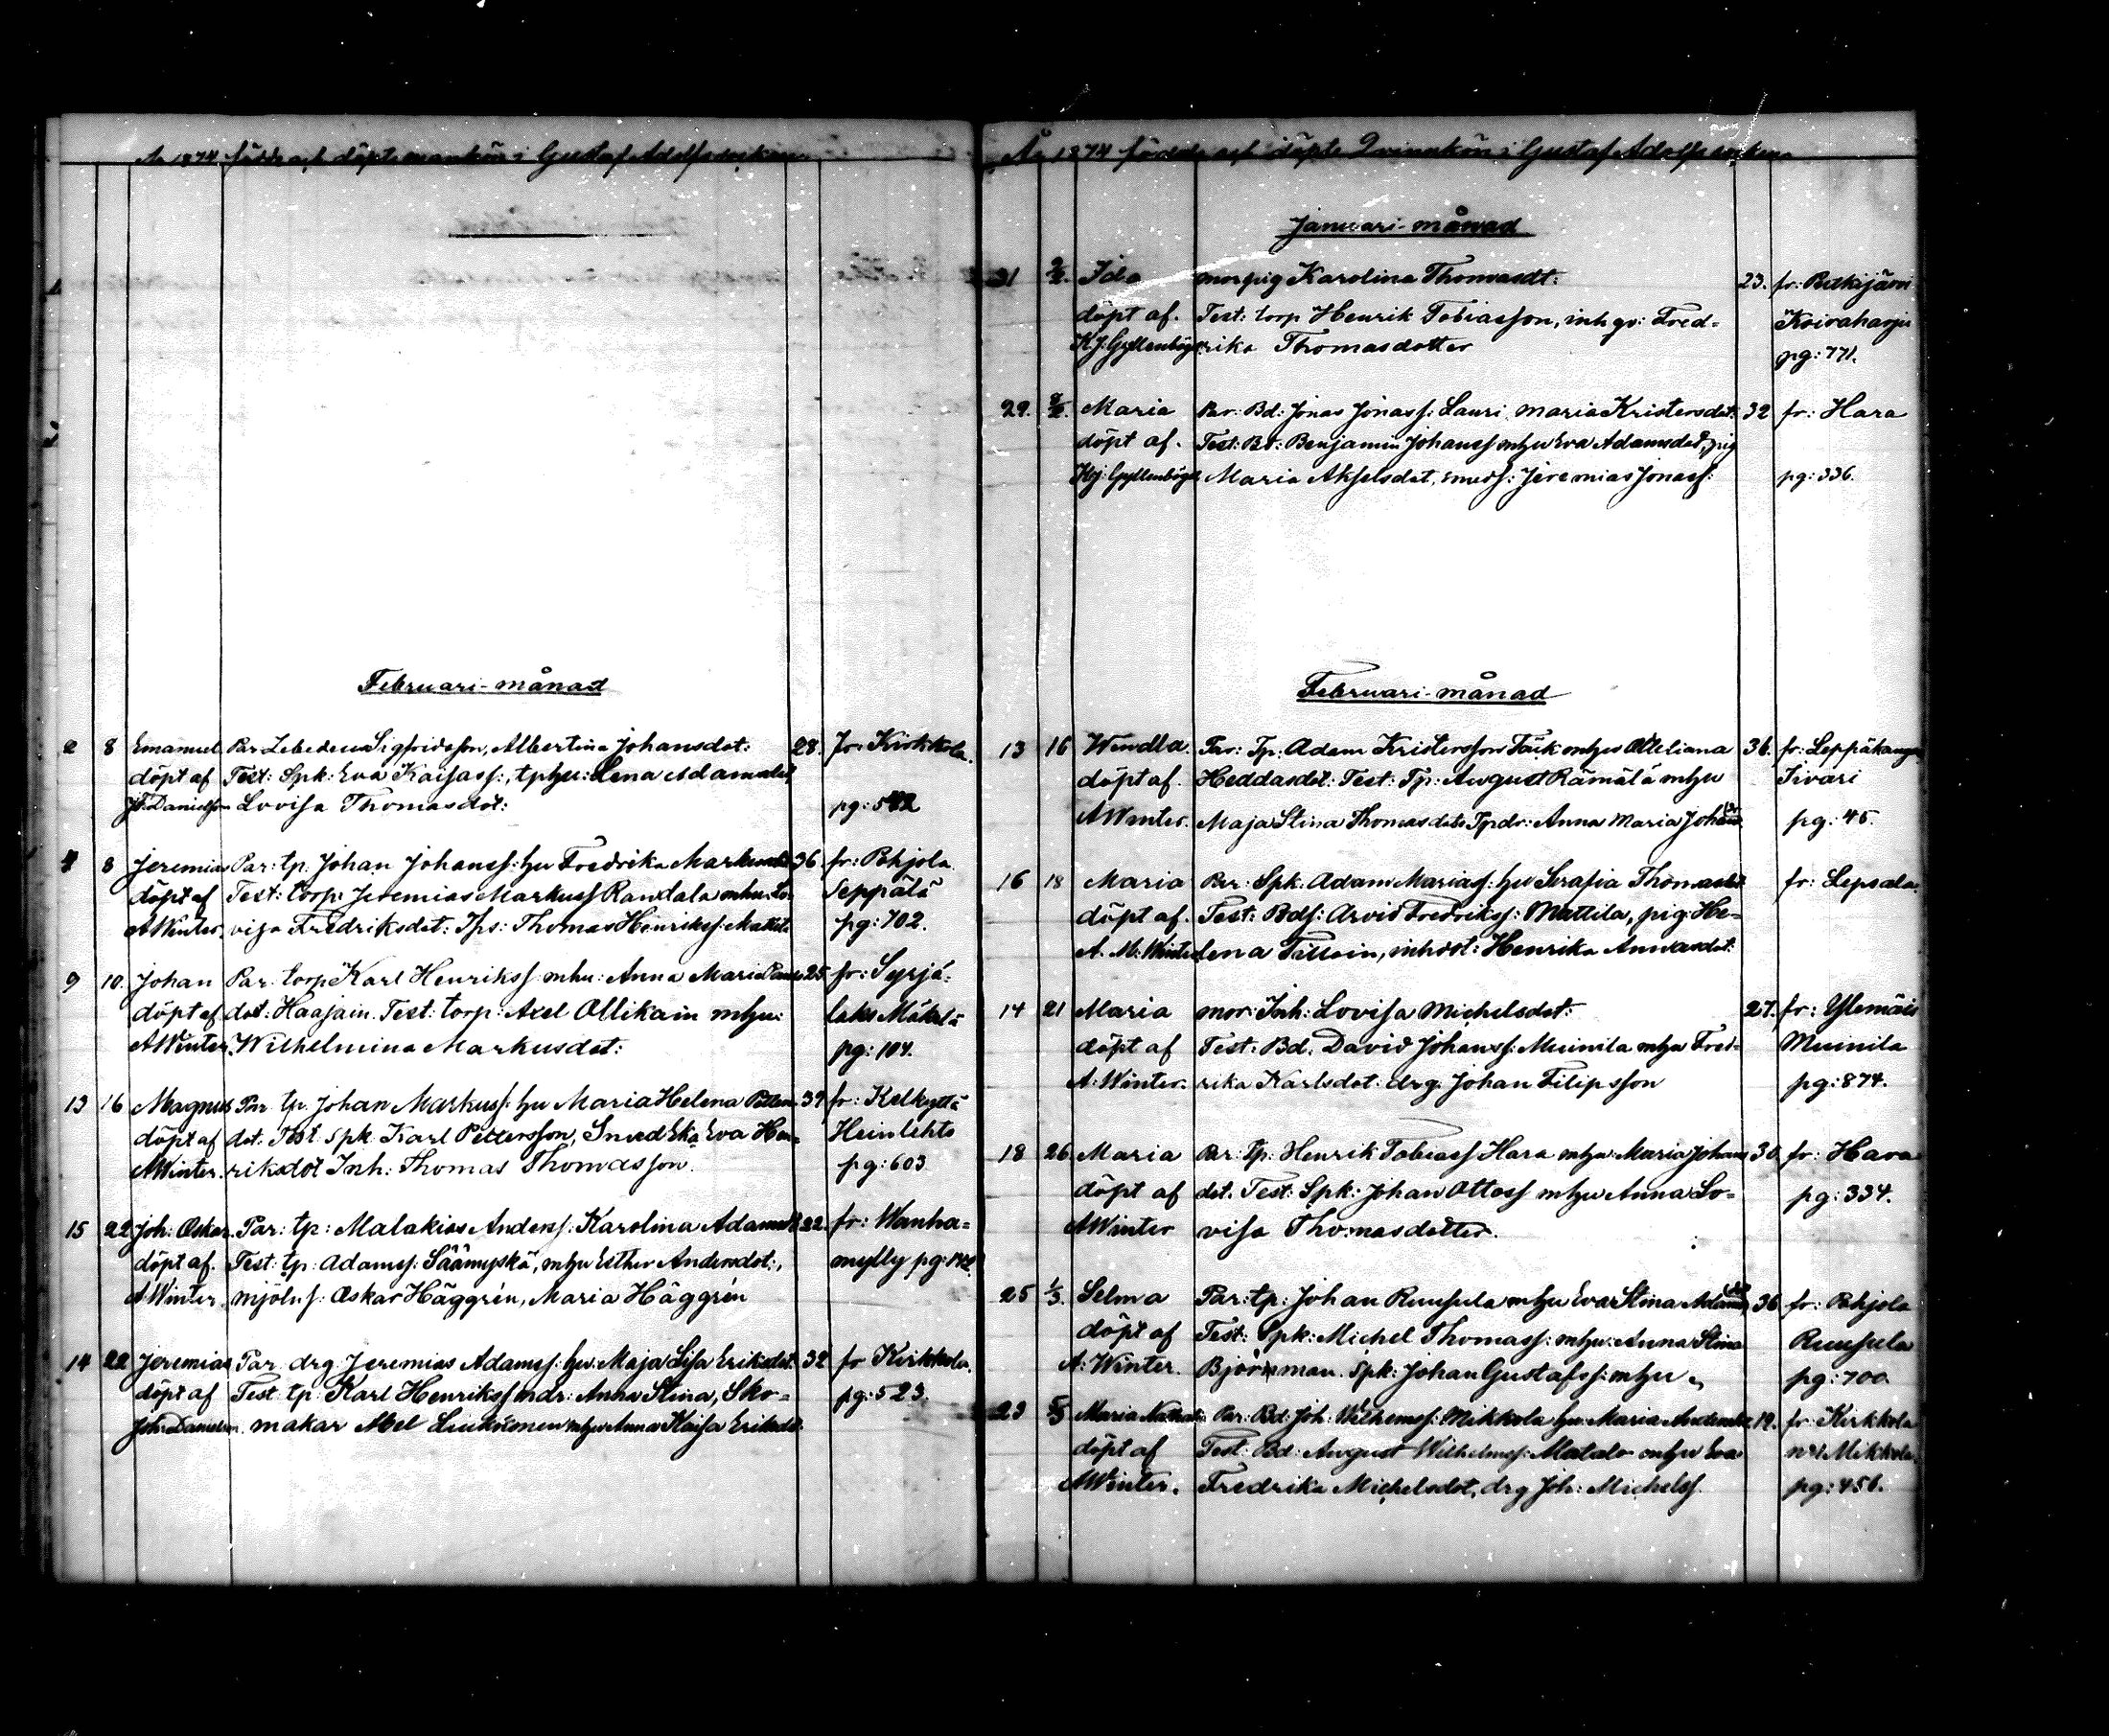 År 1874 födde och döpte mankön i Gustaf Adolfs socken
Februari-månad
2 8 Emanuel Par Zebedeus Sigfridsson, Albertina Johansdot: 28. fr: Kirkkola
döpt af Test: Spk: Eva Kaisass:, tphu: Lena Adamsdot,
J. Danielson Lovisa Thomasdot: pg: 542
4 8 Jeremias Par: tp. Johan Johanss: hu Fredrika Markusdot 36. fr: Pohjola
döpt af Test: torp: Jeremias Markuss Rantala mhu: Lo- Seppälä
A Winter. visa Fredriksdot: Tps: Thomas Henrikss: Mattila pg: 702.
9 10. Johan Par. torp Karl Henrikss mhu: Anna Maria Pauls 25 fr: Syrjä-
döpt af dot: Haajain. Test: torp: Axel Ollikain mhu: laks Mäkelä
A Winter. Wilhelmina Markusdot: pg: 104.
13 16 Magnus Par tp. Johan Markuss: hu Maria Helena Petters 39 fr: Kelkyttä
döpt af dot. Test: Spk. Karl Pettersson, Smed Eka Eva Hen- Heinlehto
A Winter. riksdot Inh: Thomas Thomasson. pg: 603
15 22 Joh: Oskar. Par: tp: Malakias Anderss: Karolina Adamsdt 22. fr: Wanha-
döpt af. Test: tp: Adamss: Säämyskä, mhu Esther Andersdot:, mylly pg: 142
A Winter. mjölns: Oskar Häggrén, Maria Häggrén
14 22 Jeremias Par. drg Jeremias Adamss: hu: Maja Lisa Eriksdot. 32 fr Kirkkola.
döpt af Test. tp: Karl Henrikss mdr: Anna Stina, Sko- pg: 523.
Joh: Danielson. makar Abel Liukkonen mhu Anna Kaisa Eriksdot
År 1874 födde och döpte Qvinnkön i Gustaf Adolfs socken
Januari-månad
31 2/2. Ida mor pig Karolina Thomasdt: 23. fr: Putkijärvi
döpt af. Test: torp Henrik Tobiasson, inh gv: Fred- Koivaharju
Kj: Gyllenbögel rika Thomasdotter pg: 771.
29. 8/2. Maria Par: Bd: Jonas Jonass: Lauri Maria Kristersdot: 32 fr: Hara
döpt af. Test: Bd: Benjamin Johanss mhu Eva Adamsdot, pig
Kj: Gyllenbögel Maria Akselsdot, smeds: Jeremias Jonass: pg: 336.
Februari-månad
13 16 Wendla. Par: Tp. Adam Kristersson Täuk mhu Otteliana 36. fr: Leppäkangas
döpt af. Heddasdot. Test: Tp: August Rämälä mhu Iivari
A Winter. Maja Stina Thomasdot: Tpdr: Anna Maria Johans dr pg: 45.
16 18 Maria Par: Spk. Adam Mariass: hu Serafia Thomasdot fr: Lepsala.
döpt af. Test: Bds: Arvid Fredrikss: Mattila, pig: He-
A. M: Winter lena Tillain, inhdot: Henrika Annasdot:
14 21 Maria mor: Inh: Lovisa Michelsdot: 27. fr: Ylemäis
döpt af Test: Bd. David Johanss: Muinila mhu Fred- Muinila
A: Winter. rika Karlsdot: drg: Johan Filipsson pg: 874.
18 26 Maria Par: tp: Henrik Tobiass Hara mhu: Maria Johans 30 fr: Hara
döpt af dot. Test: Spk: Johan Ottoss mhu Anna Lo- pg: 334.
A Winter visa Thomasdotter.
25 1/3. Selma Par: tp: Johan Ruusula mhu Eva Stina Adams dot 36 fr: Pohjola
döpt af Test: Spk: Michel Thomass: mhu: Anna Stina Ruusula
A: Winter. Björnman. Spk: Johan Gustafss: mhu „ pg: 700
23 5/3 Maria Natalia Par: Bd. Joh: Wilhemss: Mikkola hu: Maria Andersdot 19. fr: Kirkkola
döpt af Test: Bd: August Wilhelmss: Matala mhu Eva No 1 Mikkola
A Winter. Fredrika Michelsdot, drg Joh: Michelss. pg: 456.